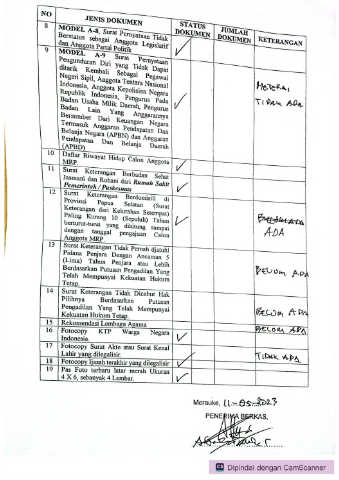 NO JENIS DOKUMEN STATUS DOKUMEN JUMLAH DOKUMEN KETERANGAN
8 MODEL A-8, Surat Pernyataan Tidak
Berstatus sebagai Anggota Legislatif
dan Anggota Partai Politik
9 MODEL A-9 Surat Pernyataan
Pengunduran Diri yang Tidak Dapat
ditarik Kembali Sebagai Pegawai
Negri Sipil, Anggota Tentara Nasional
Indonesia, Anggota Kepolisian Negara
Republik Indonesia, Pengurus Pada
Badan Usaha Milik Daerah, Pengurus
Badan Lain Yang Anggarannya
Bersumber Dari Keuangan Negara
Termasuk Anggaran Pendapatan Dan
Belanja Negara (APBN) dan Anggaran
Pendapatan Dan Belanja Daerah
(APBD)
MATERAI
TIDAK ADA
10 Daftar Riwayat Hidup Calon Anggota
MRP
11 Surat Keterangan Berbadan Sehat
Jasmani dan Rohani dari Rumah Sakit
Pemerintah / Puskesmas
12 Surat Keterangan Berdomisili di
Provinsi Papua Selatan (Surat
Keterangan dari Kelurahan Setempat)
Paling Kurang 10 (Sepuluh) Tahun
berturut-surut yang dihitung sampai
dengan tanggal pengajuan Calon
Anggota MRP
ADA
13 Surat Keterangan Tidak Pernah dijatuhi
Pidana Penjara Dengan Ancaman 5
(Lima) Tahun Penjara atau Lebih
Berdasarkan Putusan Pengadilan Yang
Telah Mempunyai Kekuatan Hukum
Tetap.
BELUM ADA
14 Surat Keterangan Tidak Dicabut Hak
Pilihnya Berdasarkan Putusan
Pengadilan Yang Telah Mempunyai
Kekuatan Hukum Tetap.
BELUM ADA
15 Rekomendasi Lembaga Agama BELUM ADA
16 Fotocopy KTP Warga Negara
Indonesia
17 Fotocopy Surat Akte atau Surat Kenal
Lahir yang dilegalisir.
TIDAK ADA
18 Fotocopy Ijasah terakhir yang dilegalisir
19 Pas Foto terbaru latar merah Ukuran
4 X 6, sebanyak 4 Lembar.
Merauke, 11-05-2023
PENERIMA BERKAS,
Dipindai dengan CamScanner